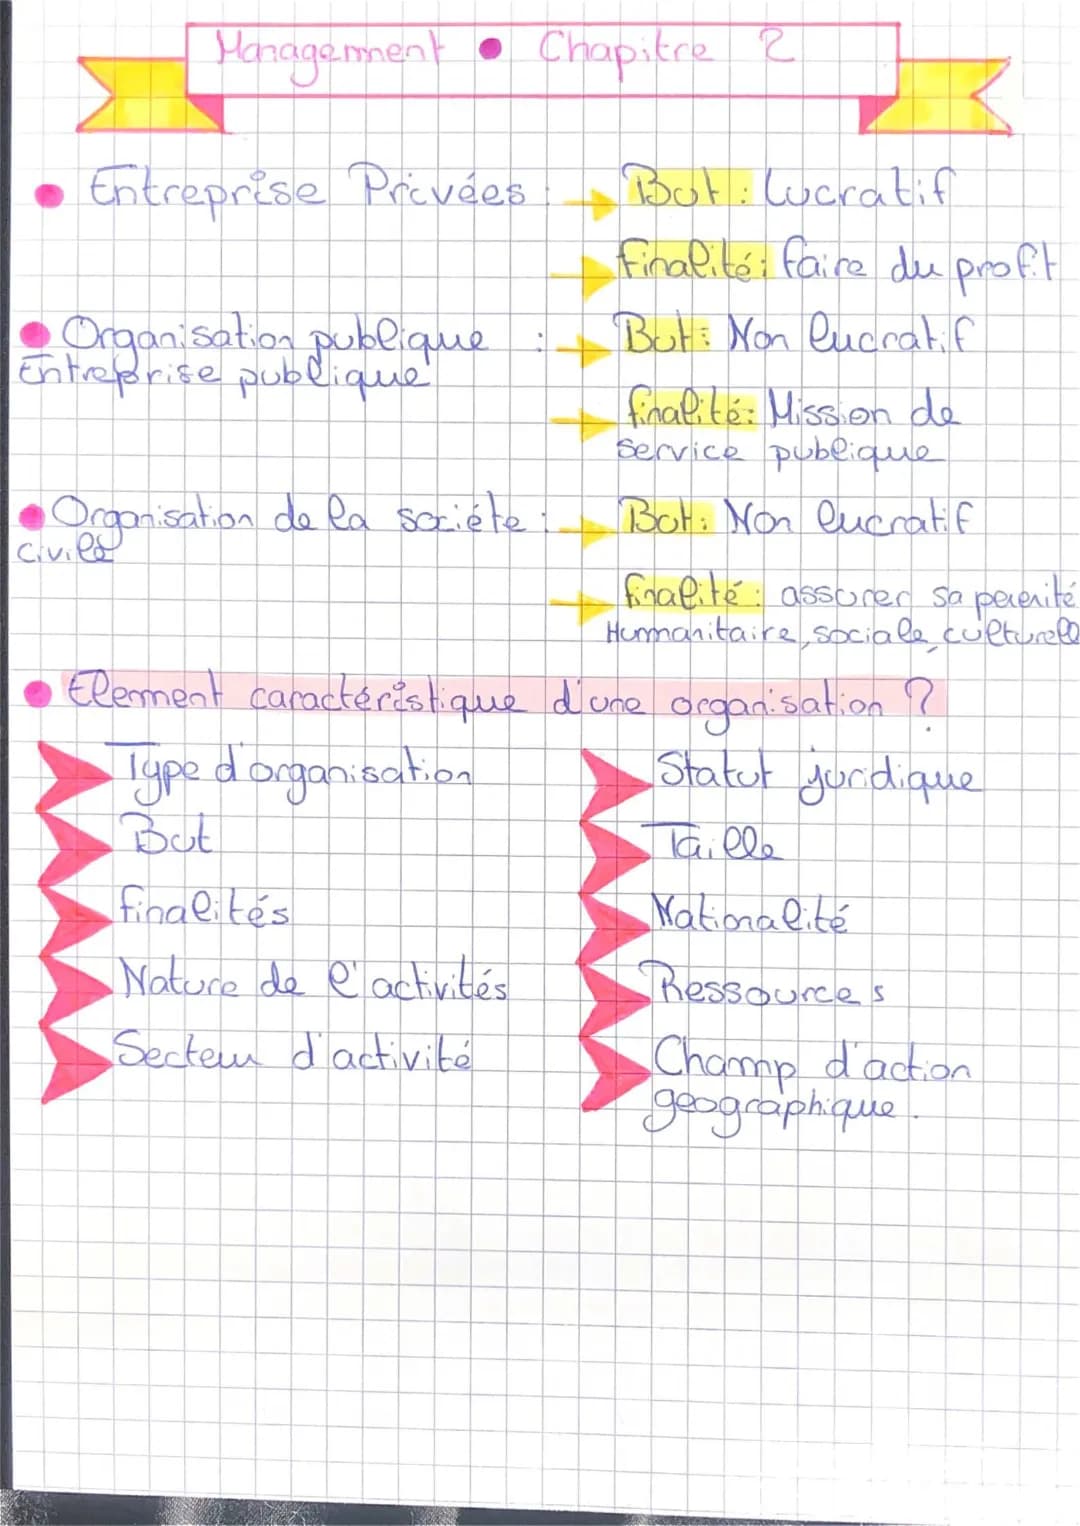 Management • Chapitre 2
• Entreprise Privées : → But : lucratif
→ finalité : faire du profit
• Organisation publique : → But : Non lucratif
Entreprise publique
→ finalité : Mission de
service publique
• Organisation de la sociéte : → But : Non lucratif
civile
→ finalité : assurer sa perenité
Humanitaire, sociale, culturelle
• Element caractéristique d'une organisation ?
Type d'organisation
But
finalités
Nature de l'activités
Secteur d'activité
Statut juridique
Taille
Nationalité
Ressources
Champ d'action
geographique.